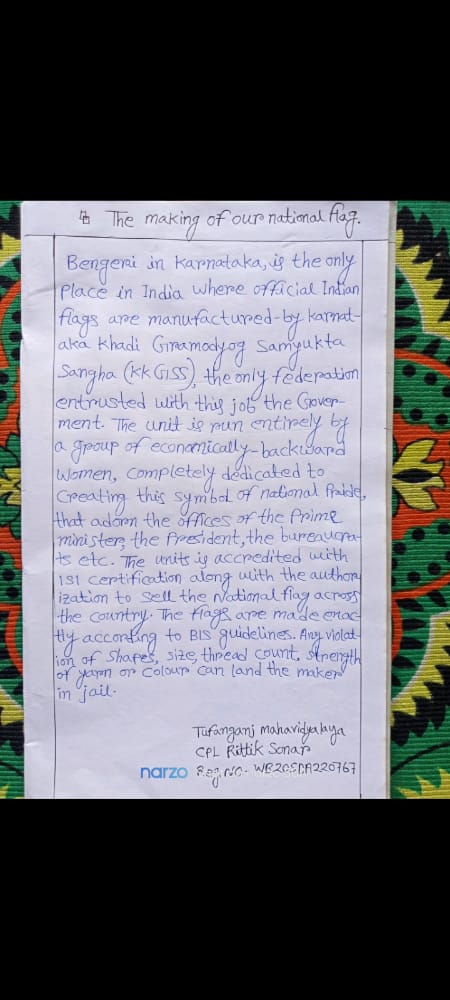 The making of our national flag.
Bengeri in Karnataka, is the only
Place in India where official Indian
flags are manufactured-by karnat-
aka Khadi Gramodyog Samyukta
Sangha (KKGISS), the only federation
entrusted with this job the Gover-
ment. The unit is run entirely by
a group of economically-backward
women, completely dedicated to
Creating this symbol of national Pride,
that adorn the offices of the Prime
minister, the President, the bureaucra-
ts etc. The units is accredited with
ISI certification along with the author
ization to sell the National flag across
the country. The flags are made exac-
tly according to BIS guidelines. Any violat-
ion of shapes, size, thread count, strength
of yarn or colour can land the maker
in jail.
Tufanganj Mahavidyalaya
CPL Rittik Sonar
narzo Reg NO- WB20SDA220767